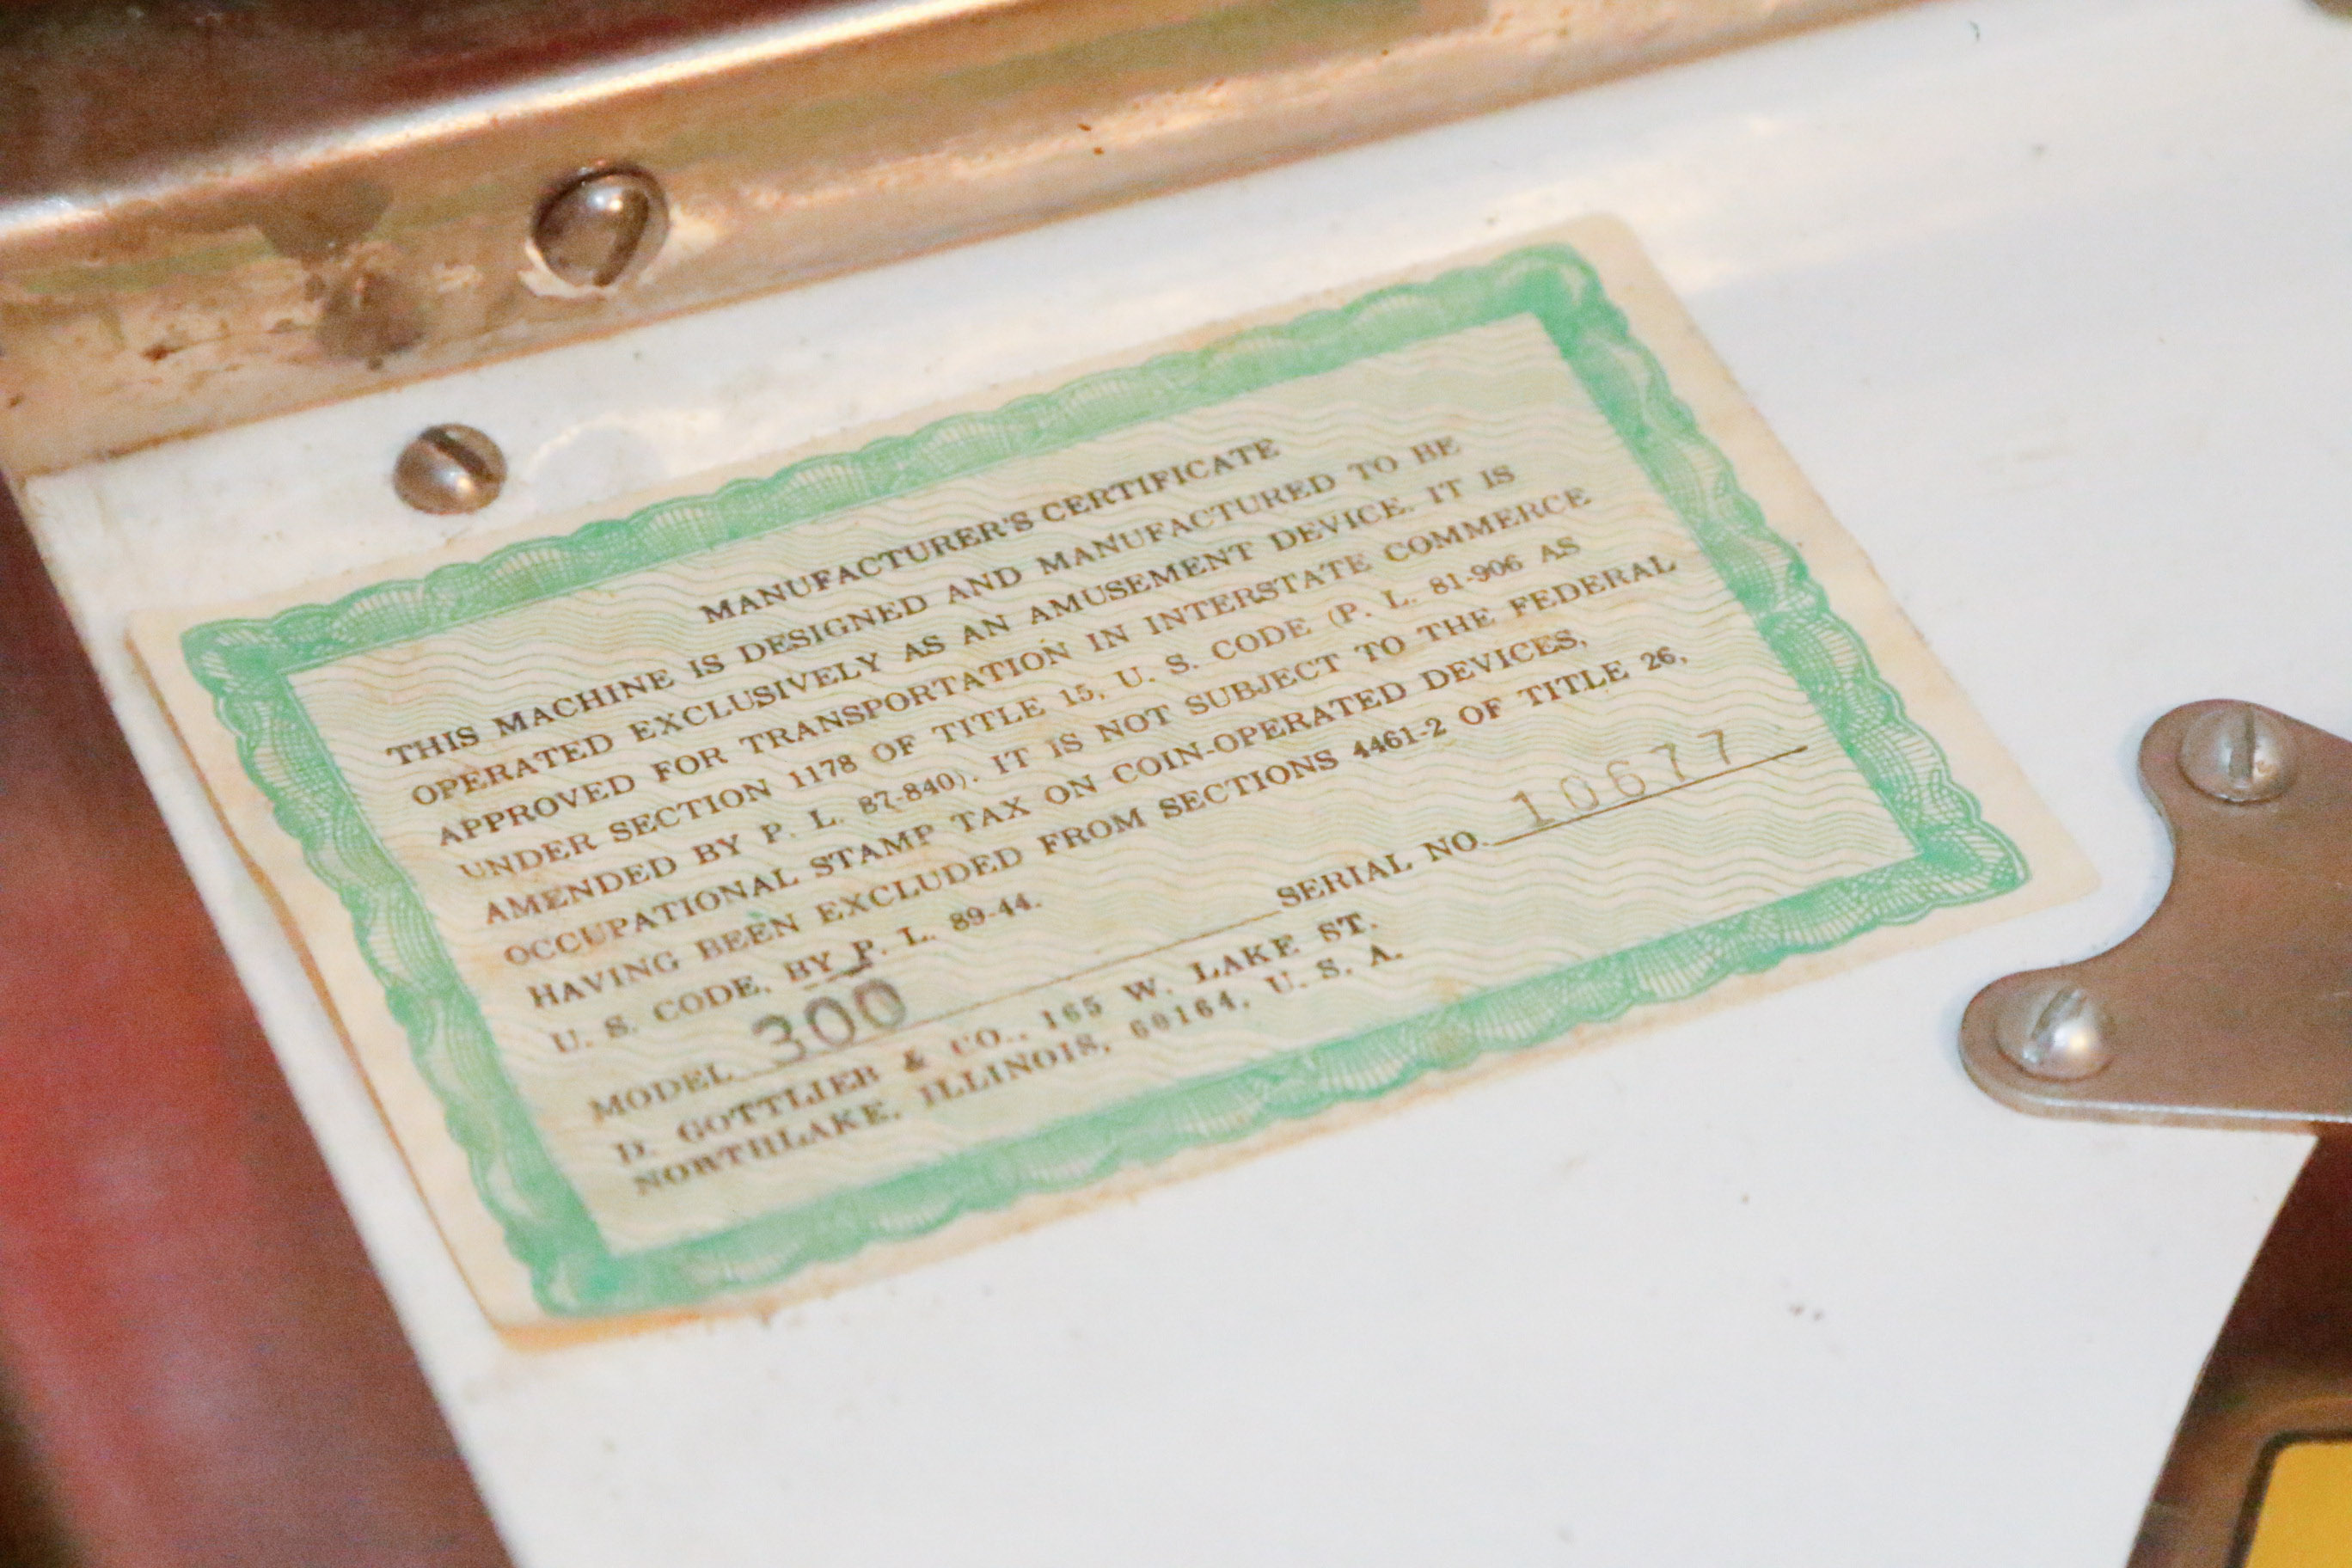 MANUFACTURER'S CERTIFICATE
THIS MACHINE IS DESIGNED AND MANUFACTURED TO BE
OPERATED EXCLUSIVELY AS AN AMUSEMENT DEVICE. IT IS
APPROVED FOR TRANSPORTATION IN INTERSTATE COMMERCE
UNDER SECTION 1178 OF TITLE 15, U. S. CODE (P. L. 81-906 AS
AMENDED BY P. L. 87-840). IT IS NOT SUBJECT TO THE FEDERAL
OCCUPATIONAL STAMP TAX ON COIN-OPERATED DEVICES,
HAVING BEEN EXCLUDED FROM SECTIONS 4461-2 OF TITLE 26,
U. S. CODE, BY P. L. 89-44.
MODEL 300 SERIAL NO. 10677
D. GOTTLIEB & CO., 165 W. LAKE ST.
NORTHLAKE, ILLINOIS, 60164, U. S. A.